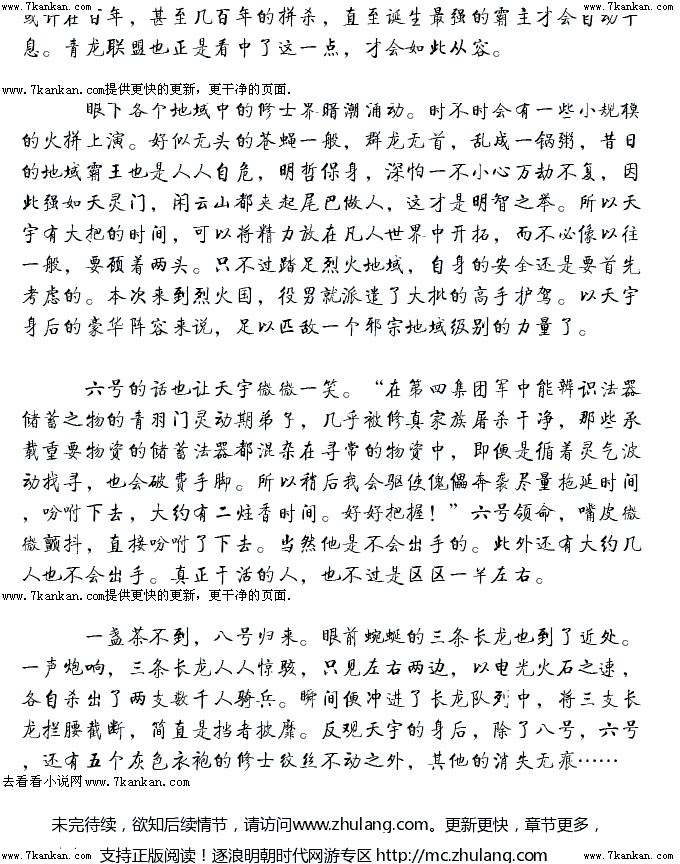 www.7kankan.com www.7kankan.com
或许在百年，甚至几百年的拼杀，直至诞生最强的霸主才会自动平
息。青龙联盟也正是看中了这一点，才会如此从容。
www.7kankan.com提供更快的更新，更干净的页面.
眼下各个地域中的修士界暗潮涌动。时不时会有一些小规模
的火拼上演。好似无头的苍蝇一般，群龙无首，乱成一锅粥，昔日
的地域霸王也是人人自危，明哲保身，深怕一不小心万劫不复，因
此强如天灵门，闲云山都夹起尾巴做人，这才是明智之举。所以天
宇有大把的时间，可以将精力放在凡人世界中开拓，而不必像以往
一般，要顾着两头。只不过踏足烈火地域，自身的安全还是要首先
考虑的。本次来到烈火国，役男就派遣了大批的高手护驾。以天宇
身后的豪华阵容来说，足以匹敌一个邪宗地域级别的力量了。
六号的话也让天宇微微一笑。“在第四集团军中能辨识法器
储蓄之物的青羽门灵动期弟子，几乎被修真家族屠杀干净，那些承
载重要物资的储蓄法器都混杂在寻常的物资中，即便是循着灵气波
动找寻，也会破费手脚。所以稍后我会驱使傀儡奔袭尽量拖延时间
，吩咐下去，大约有二炷香时间。好好把握！”六号领命，嘴皮微
微颤抖，直接吩咐了下去。当然他是不会出手的。此外还有大约几
人也不会出手。真正干活的人，也不过是区区一半左右。
www.7kankan.com提供更快的更新，更干净的页面.
一盏茶不到，八号归来。眼前蜿蜒的三条长龙也到了近处。
一声炮响，三条长龙人人惊骇，只见左右两边，以电光火石之速，
各自杀出了两支数千人骑兵。瞬间便冲进了长龙队列中，将三支长
龙拦腰截断，简直是挡者披靡。反观天宇的身后，除了八号，六号
，还有五个灰色衣袍的修士纹丝不动之外，其他的消失无痕……
去看看小说网www.7kankan.com
未完待续，欲知后续情节，请访问www.zhulang.com。更新更快，章节更多，
www.7kankan.com 支持正版阅读！逐浪明朝时代网游专区 http://mc.zhulang.com/ www.7kankan.com